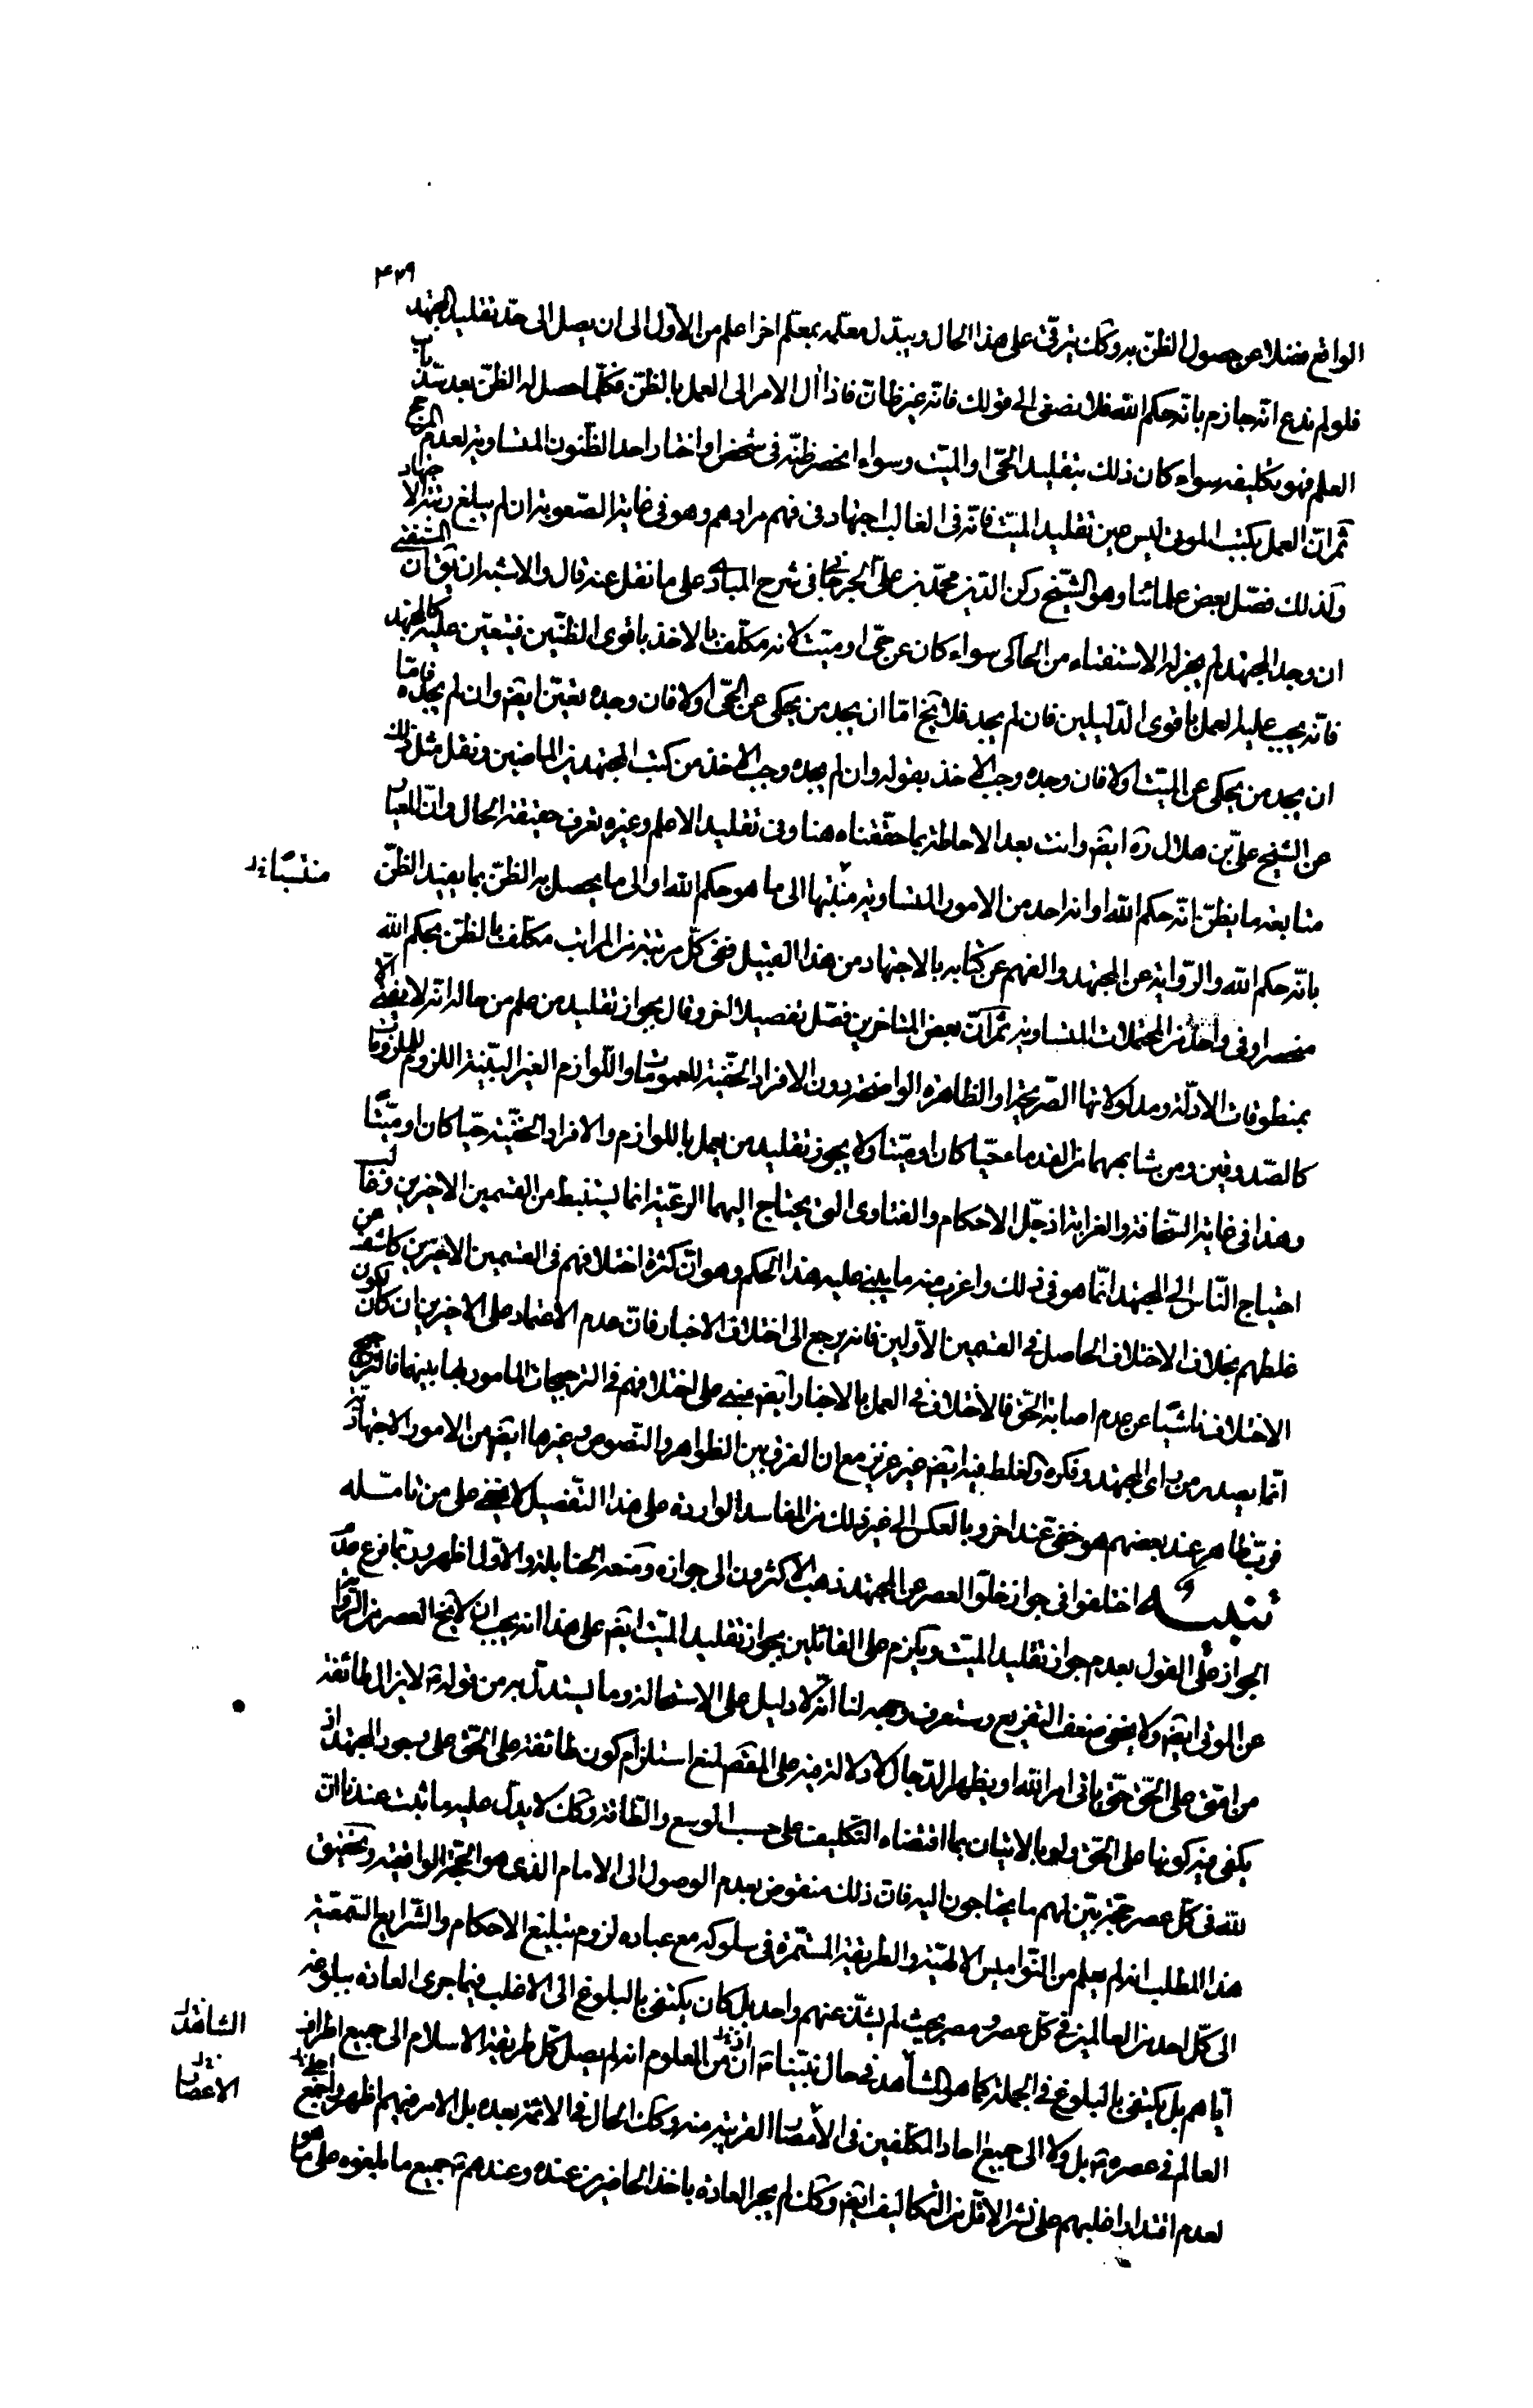 ۴۲۹
الواقع فضلا عن حصول الظنّ به وكك يترقى على هذا الحال ويبدّل معلّمه بمعلّم اخر اعلم من الأوّل الى ان يصل الى حدّ تقليد المجتهد
فلو لم ندع انه جازم بانّه حكم الله فلا نصغى الى قولك فانّه غير ظانّ فاذا ال الامر الى العمل بالظنّ فكلّما حصل له الظنّ بعد سدّ باب
العلم فهو تكليفه سواء كان ذلك بتقليد الحىّ او الميّت وسواء انحصر ظنّه فى شخص او اختار احد الظّنون المتساوية لعدم المرجح
ثمّ انّ العمل بكتب الموتى ليس عين تقليد الميّت فانّه فى الغالب اجتهاد فى فهم مرادهم وهو فى غاية الصّعوبة ان لم يبلغ رتبة الاجتهاد
ولذلك فصّل بعض علمائنا وهو الشّيخ ركن الدّين محمّد بن علىّ الجرجانى فى شرح المبادى على ما نقل عنه قال والاشبه ان يق ان المستفتى
ان وجد المجتهد لم يجز له الاستفتاء من الحاكى سواء كان عن حىّ او ميّت لانه مكلّف بالاخذ باقوى الظنّين فيتعيّن عليه كالمجتهد
فانّه يجب عليه العمل باقوى الدّليلين فان لم يجد فلا يخ امّا ان يجد من يحكى عن الحىّ اولا فان وجده تعيّن ايضا وان لم يجده فامّا
ان يجد من يحكى عن الميّت اولا فان وجده وجب الاخذ بقوله وان لم يجده وجب الاخذ من كتب المجتهدين الماضين ونقل مثل ذلك
عن الشيخ علىّ بن هلال ره ايضا وانت بعد الاحاطة بما حقّقناه هنا وفى تقليد الاعلم وغيره تعرف حقيقة الحال وانّ المعيار
متابعة ما يظنّ انّه حكم الله او انه احد من الامور المتساوية منتسبتها الى ما هو حكم الله او الى ما يحصل به الظنّ بما يفيد الظنّ
منتسبا خ ل
بانّه حكم الله والرّواية عن المجتهد والفهم عن كتابه بالاجتهاد من هذا القبيل ففى كلّ مرتبة من المراتب مكلّف بالظنّ بحكم الله
منحصرا وفى واحد من المحتملات المتساوية ثمّ انّ بعض المتاخرين فصّل تفصيلا اخر وقال بجواز تقليد من علم من حاله انّه لا يفتى الّا
بمنطوقات الادلّة ومدلولاتها الصّريحة او الظاهرة الواضحة دون الافراد الخفيّة للعمومات واللّوازم الغير البيّنة اللزوم للملزومات
كالصّدوقين ومن شابههما من القدماء حيّا كان او ميّتا ولا يجوز تقليد من يعمل باللوازم والافراد الخفيّة حيّا كان او ميّتا
وهذا فى غاية السّخافة والغرابة اذ جلّ الاحكام والفتاوى التى يحتاج اليهما الرعيّة انما يستنبط من القسمين الاخيرين وغالب
احتياج النّاس الى المجتهد انّما هو فى ذلك واغرب منه ما يبنى عليه هذا الحكم وهو انّ كثرة اختلافهم فى القسمين الاخيرين كاشفة عن
غلطهم بخلاف الاختلاف الحاصل فى القسمين الاوّلين فانه يرجع الى اختلاف الاخبار فانّ عدم الاعتماد على الاخيرين ان كان لكون
الاختلاف ناشيا عن عدم اصابة الحق فالاختلاف فى العمل بالاخبار ايضا مبنى على اختلافهم فى الترجيحات المامور بها بينهما فالترجيح
انّما يصدر من راى المجتهد وفكره والغلط فيه ايضا غير عزيز مع ان الفرق بين الظواهر والنّصوص وغيرها ايضا من الامور الاجتهاديّة
فربّ ظاهر عند بعضهم هو خفىّ عند اخر وبالعكس الى غير ذلك من المفاسد الواردة على هذا التّفصيل لا يخفى على من تامّله
تنبيه اختلفوا فى جواز خلوّ العصر عن المجتهد ذهب الاكثرون الى جوازه ومنعه الحنابلة والاوّل اظهر وربّما فرع عدم
الجواز على القول بعدم جواز تقليد الميّت ويلزم على القائلين بجواز تقليد الميّت ايضا على هذا انه يجب ان لا يخ العصر من الرّواة
عن الموتى ايضا ولا يخفى ضعف التفريع وستعرف وجهه لنا انّه لا دليل على الاستحالة وما يستدلّ به من قوله ص لا يزال طائفة
من امّتى على الحقّ حتّى ياتى امر الله او يظهر الدّجال لا دلالة فيه على المقصم لمنع استلزام كون طائفة على الحق على وجود المجتهد اذ
يكفى فيه كونها على الحق ولو بالاتيان بما اقتضاه التّكليف على حسب الوسع والطّاقة وكك لا يدلّ عليه ما ثبت عندنا انّ
لله فى كلّ عصر حجّة يبيّن لهم ما يحتاجون اليه فانّ ذلك منقوض بعدم الوصول الى الامام الذى هو الحجّة الواقعيّة وتحقيق
هذا المطلب انه لم يعلم من النّواميس الالهيّة والطريقة المستمرّة فى سلوكه مع عباده لزوم تبليغ الاحكام والشّرايع التحقيقيّة
الى كلّ احد من العالمين فى كلّ عصر ومصر بحيث لم يشذّ عنهم واحد بل كان يكتفى بالبلوغ الى الاغلب فيما جرى العادة ببلوغه
ايّاهم بل يكتفى بالبلوغ فى الجملة كما هو الشاهد فى حال نبيّنا ص اذ من المعلوم انه لم يصل كلّ طريقة الاسلام الى جميع اطراف
الشاهد خ ل
العالم فى عصره ص بل ولا الى جميع احاد المكلّفين فى الامصار القريبة منه وكك الحال فى الائمة بعده بل الامر فيهم اظهر واجلى
الاعصار خ ل
لعدم اقتدار اغلبهم على نشر الاقل من التكاليف ايضا وكك لم يجر العادة باخذ الحاضرين عنده وعندهم ع جميع ما بلغوه على ما هو